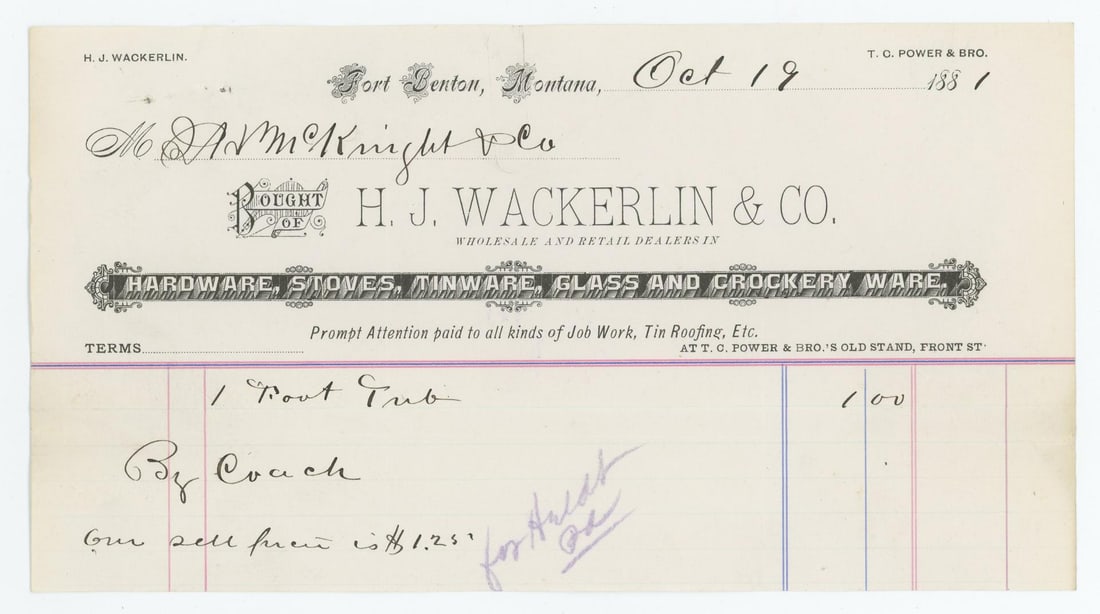 H. J. WACKERLIN.
T. C. POWER & BRO.
Fort Benton, Montana, Oct 19 1881
M McKnight & Co
BOUGHT OF
H. J. WACKERLIN & CO.
WHOLESALE AND RETAIL DEALERS IN
HARDWARE, STOVES, TINWARE, GLASS AND CROCKERY WARE.
Prompt Attention paid to all kinds of Job Work, Tin Roofing, Etc.
TERMS
AT T. C. POWER & BRO.'S OLD STAND, FRONT ST.
1 Foot Tub 1 00
By Coach
our sell price is $1.25
for
Pd